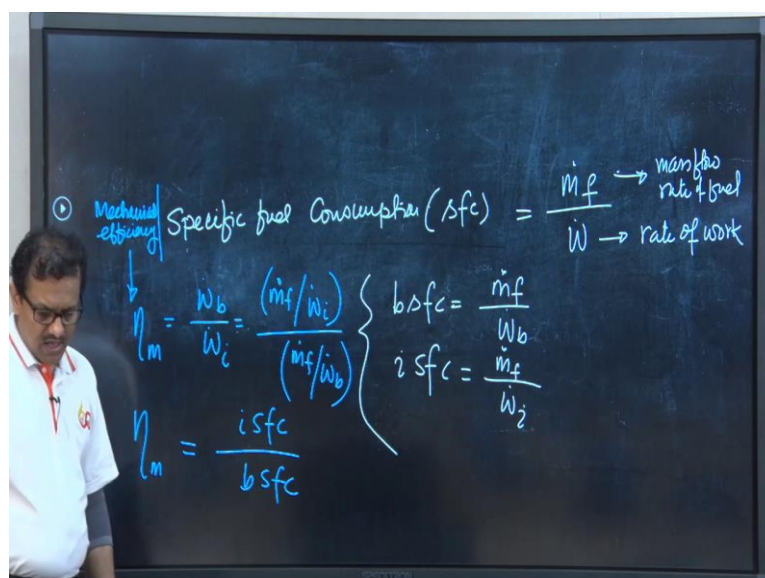 Mechanical efficiency
Specific fuel Consumption (sfc) = ṁf / ẇ
ṁf → mass flow rate of fuel
ẇ → rate of work
ηm = ẇb / ẇi = (ṁf/ẇi) / (ṁf/ẇb)
bsfc = ṁf / ẇb
isfc = ṁf / ẇi
ηm = isfc / bsfc